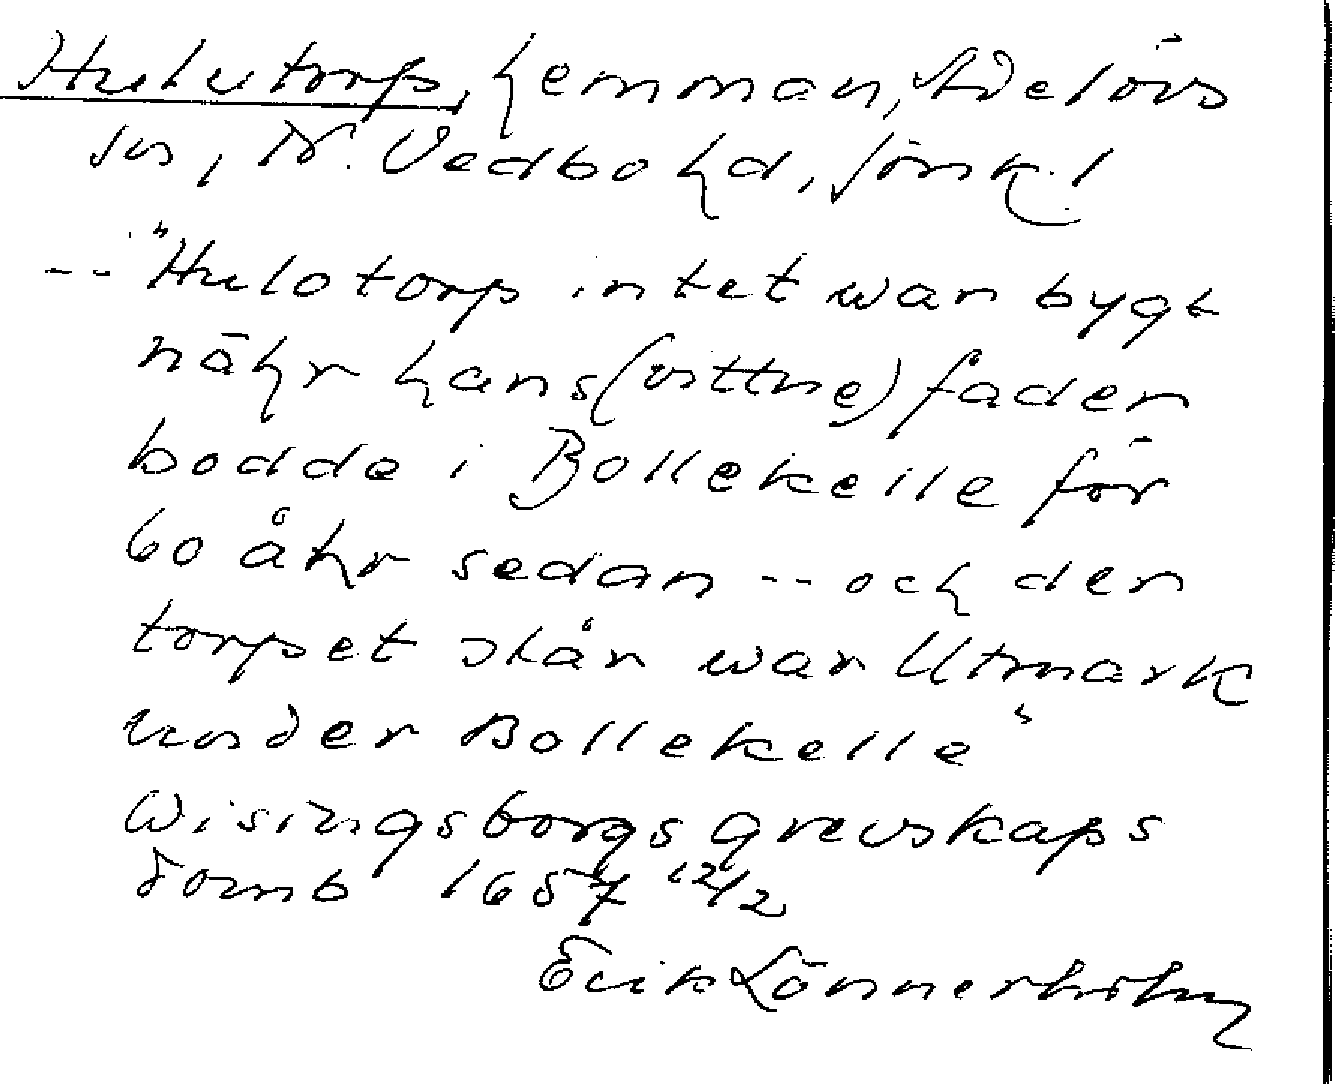 Hulutorp, hemman, Adelövs
sn, N. Vedbo hd, Jönk. l
-- "Hulotorp intet war bygt
nähr hans (vittne) fader
bodde i Bollekelle för
60 åhr sedan -- och der
torpet står war Utmark
under Bollekelle"
Wisingsborgs grevskaps
domb 1657 12/2
Erik Lönnerholm